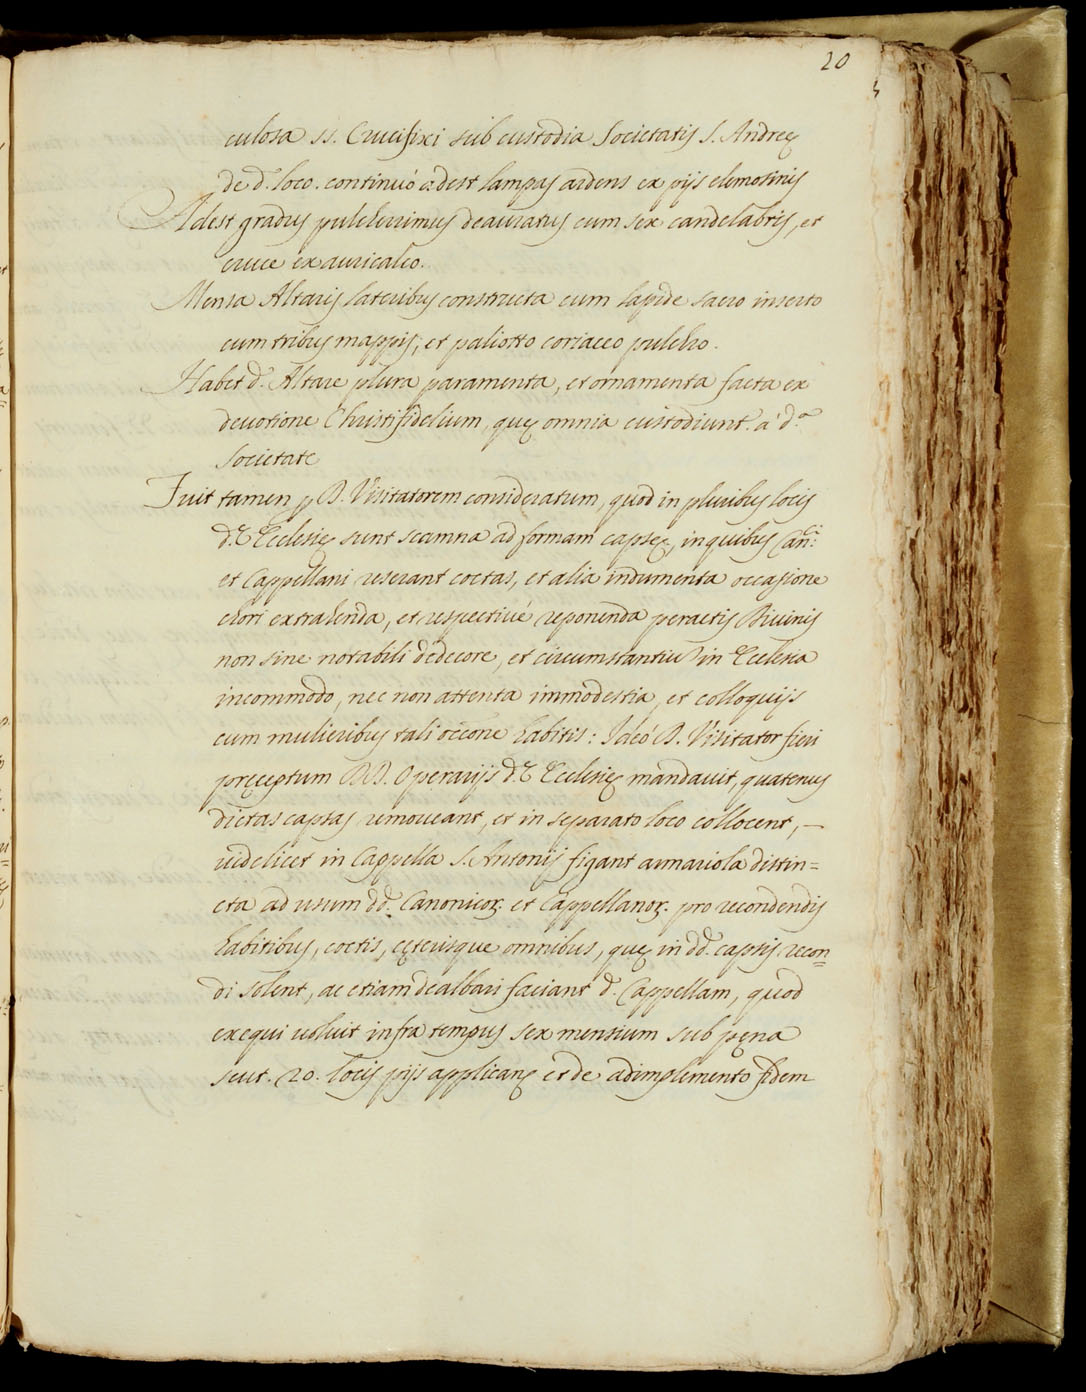 20
culosa SS. Crucifixi sub custodia Societatis S. Andreę
de d.º loco. continuó adest lampas ardens ex pijs elemosinis
Adest gradus pulcherrimus deauratus cum sex candelabris, et
cruce ex auricalco.
Mensa Altaris lateribus constructa cum lapide sacro inserto
cum tribus mappis, et paliotto coriaceo pulchro.
Habet d.º Altare plura paramenta, et ornamenta facta ex
devotione Christifidelium, quę omnia custodiunt. á d.ª
Societate
Fuit tamen p D. Visitatorem consideratum, quod in pluribus locis
d.ę Ecclesię sunt scamna ad formam capsę, in quibus Can.ci
et Cappellani reserant coctas, et alia indumenta occasione
chori extrahenda, et respectivé reponenda peractis Divinis
non sine notabili dedecore, et circumstantiũ in Ecclesia
incommodo, nec non attenta immodestia, et colloquijs
cum mulieribus tali occõne habitis: Ideó D. Visitator fieri
pręceptum DD. Operarijs d.ę Ecclesię mandavit, quatenus
dictas capsas removeant, et in separato loco collocent, —
videlicet in Cappella S. Antonij figant armariola distin=
cta ad usum dd. Canonicoꝝ. et Cappellanoꝝ. pro recondendis
habitibus, coctis, cęterisque omnibus, quę in dd. capsis recon=
di solent, ac etiam dealbari faciant d. Cappellam, quod
exequi voluit infra tempus sex mensium sub pęna
scut. 20. locis pijs applicanę et de adimplemento fidem